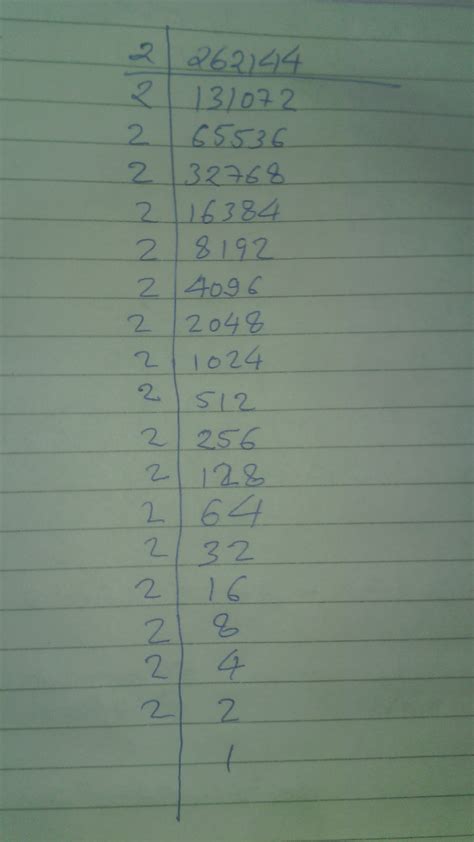 2 262144
2 131072
2 65536
2 32768
2 16384
2 8192
2 4096
2 2048
2 1024
2 512
2 256
2 128
2 64
2 32
2 16
2 8
2 4
2 2
1